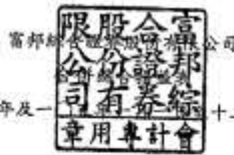 富邦綜合證券股份有限公司
年及一
十
富邦綜
合證券
股份有
限公司
會計專用章